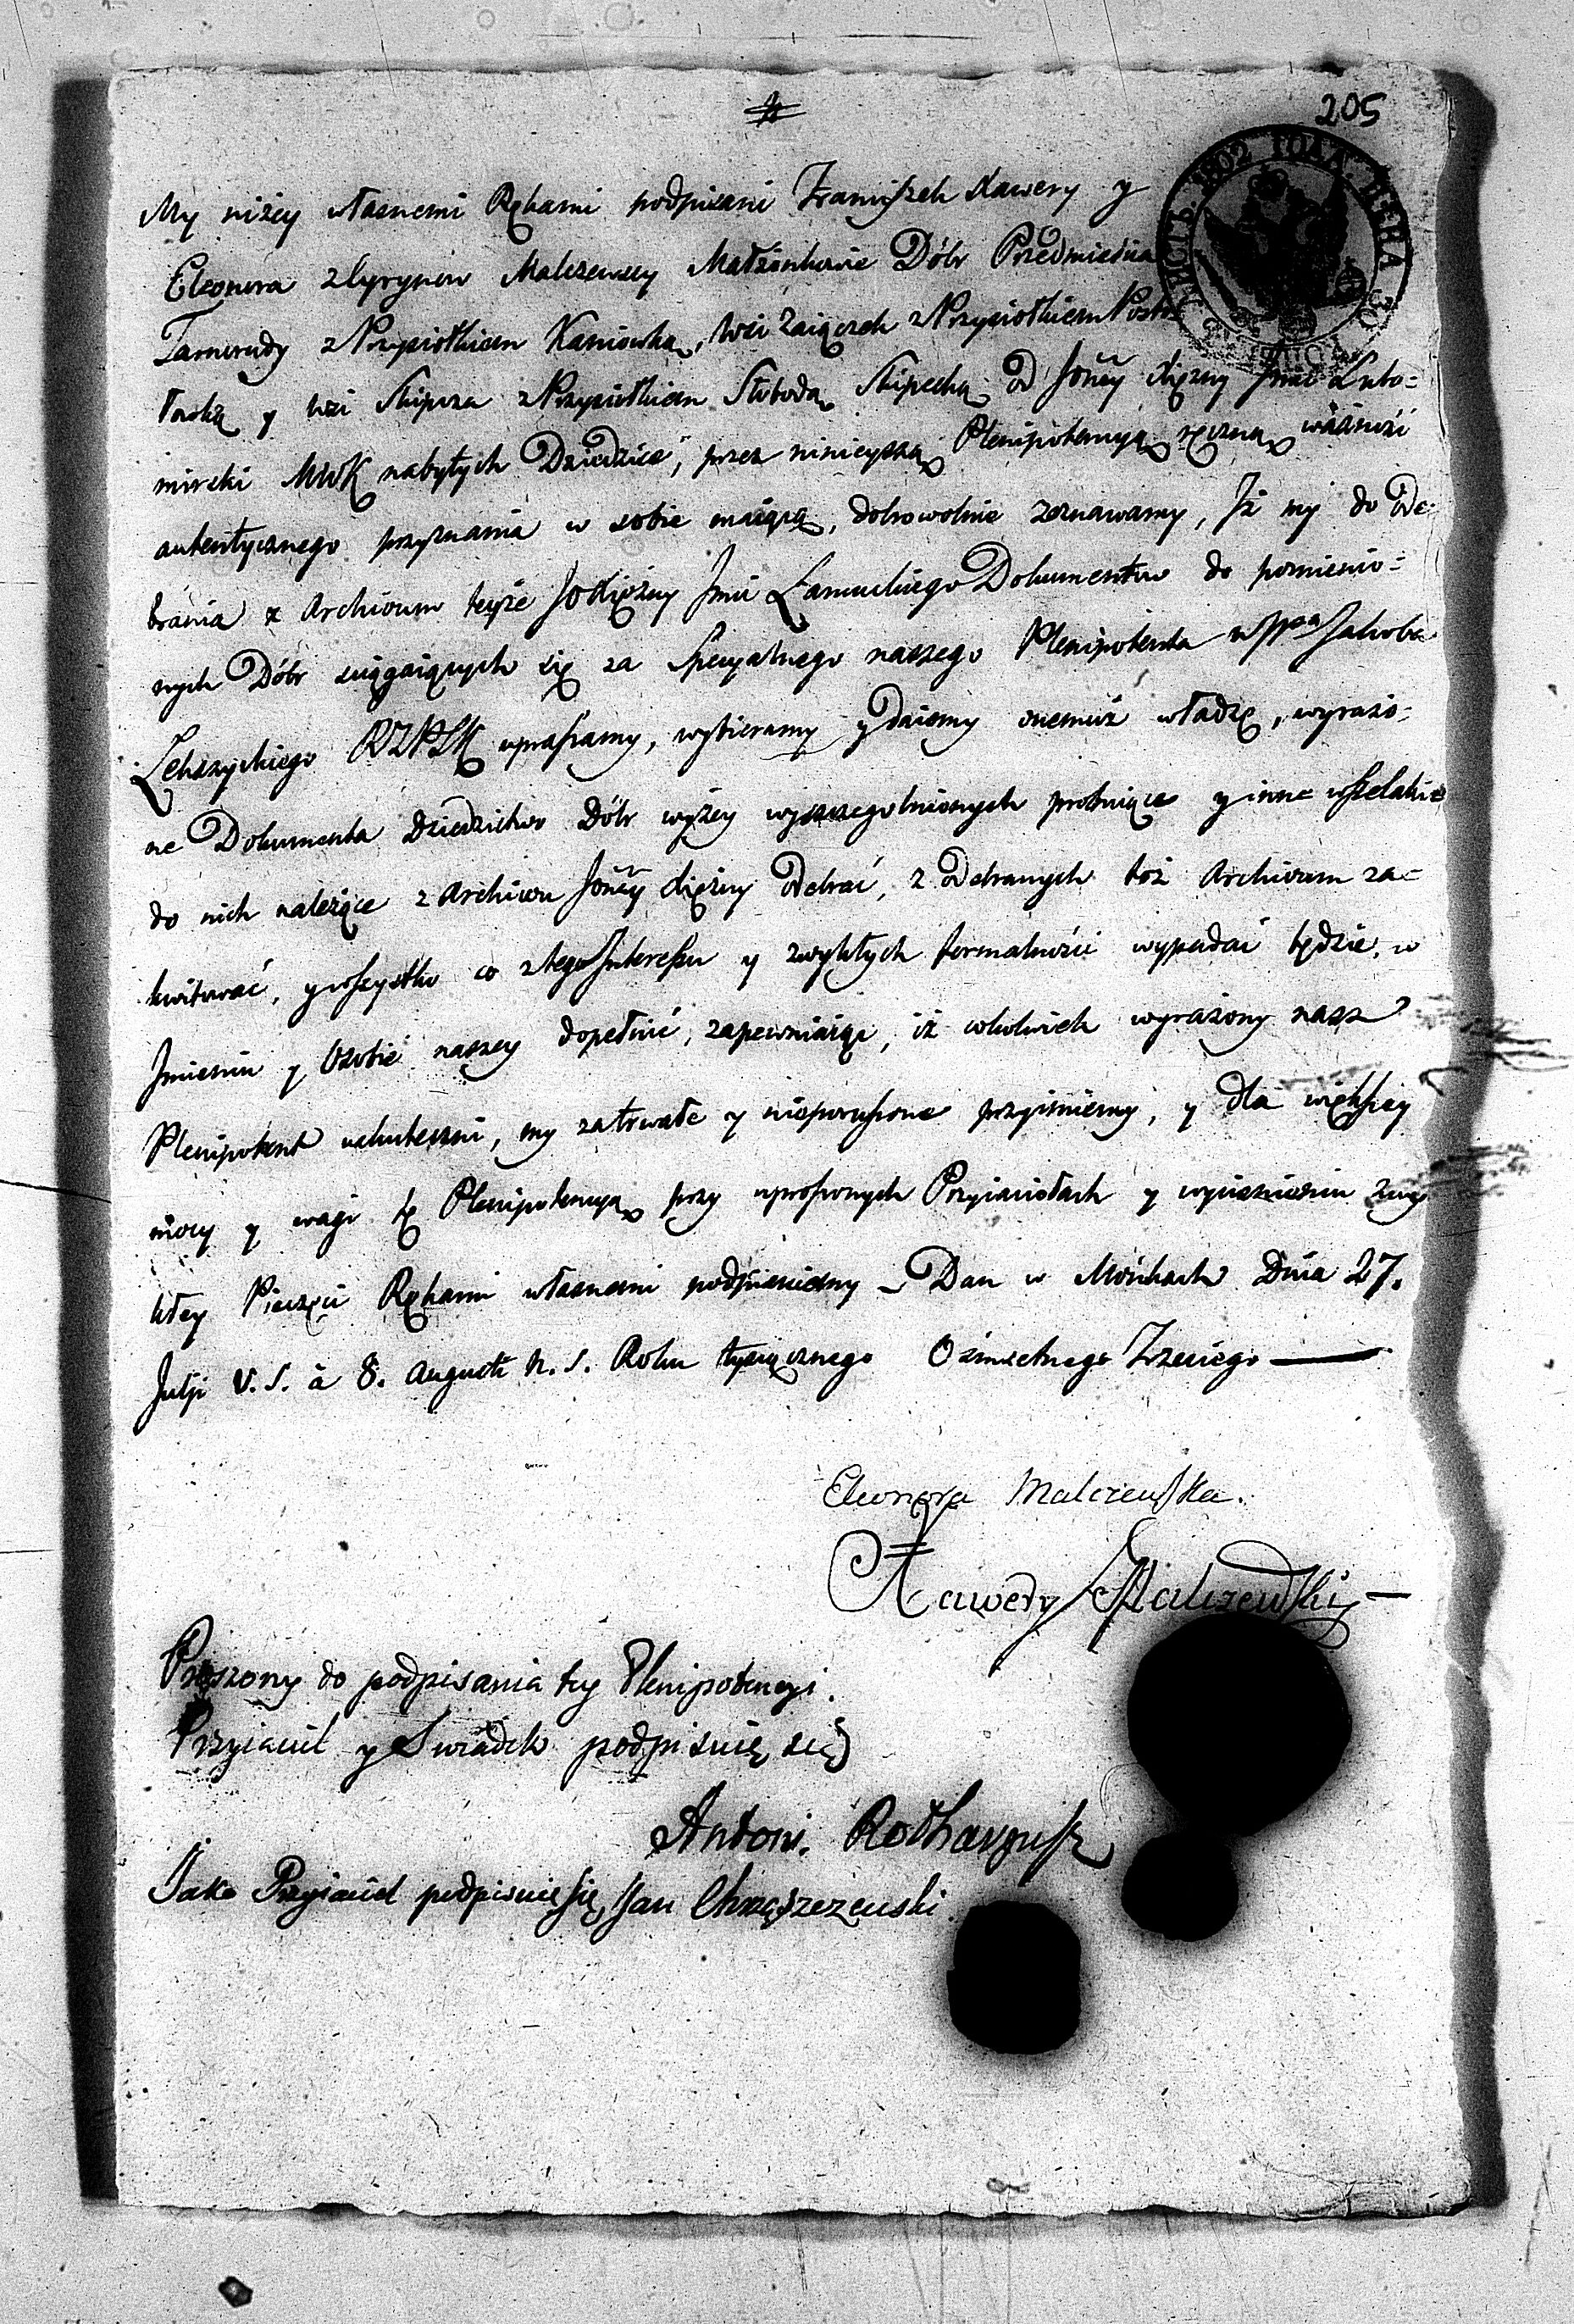 205
My niżey własnemi Rękami podpisani Franciszek Xawery y
Eleonora z Cyrynow Malczewscy Małżonkowie Dóbr Przedmieścia
Tarnorudy z Przysiołkiem Kaniowką, Wsi Zaiączek z Przysiołkiem
y Wsi z Przysiołkiem Słobodą od JOŃey Xiężny Jmci Lubo=
mirski MWK nabytych Dziedzice, przez ninieyszą Plenipotencyą ręczną ważność
autentycznego przyznania w sobie maiącą, dobrowolnie zeznawamy, Iż my do Ode=
brania z Archivum teyże JOXiężny Jmci Łancuckiego Dokumentow do pomienio=
nych Dóbr sciągaiących się za Specyalnego naszego Plenipotenta WJPa Jakoba
upraszamy, wybieramy y Daiemy onemuż władzę, wyrażo=
ne Dokumenta Dziedzictwo Dóbr wyżey wyszczegolnionych probuiące y inne wszelakie
do nich należące z Archiwu JOŃey Xiężny Odebrać, z Odebranych toż Archivum za=
kwitować, y wszystko co z tego Interessu y zwykłych formalności wypadać będzie, w
Jmieniu y Osobie naszey dopełnić, zapewniaiąc, iż cokolwiek wyrażony nasz
Plenipotent uskuteczni, my za trwałe y nieporuszone przyimiemy, y dla większey
mocy y wagi tę Plenipotencyą przy uproszonych Przyiaciołach y wycisnieniu zwy
kłey Pieczęci Rękami własnemi podpisuiemy – Dan w Dnia 27.
Julji V. S. à 8. Augusti N. S. Roku tysiącznego Ośmsetnego Trzeciego —
Eleonora Malczewska.
Xawery Malczewski —
Proszony do podpisania tey Plenipotencyi.
Przyiaciel y Swiadek podpisuię się
Antoni
Jako Przyiaciel podpisuie się Jan Chrząszczewski